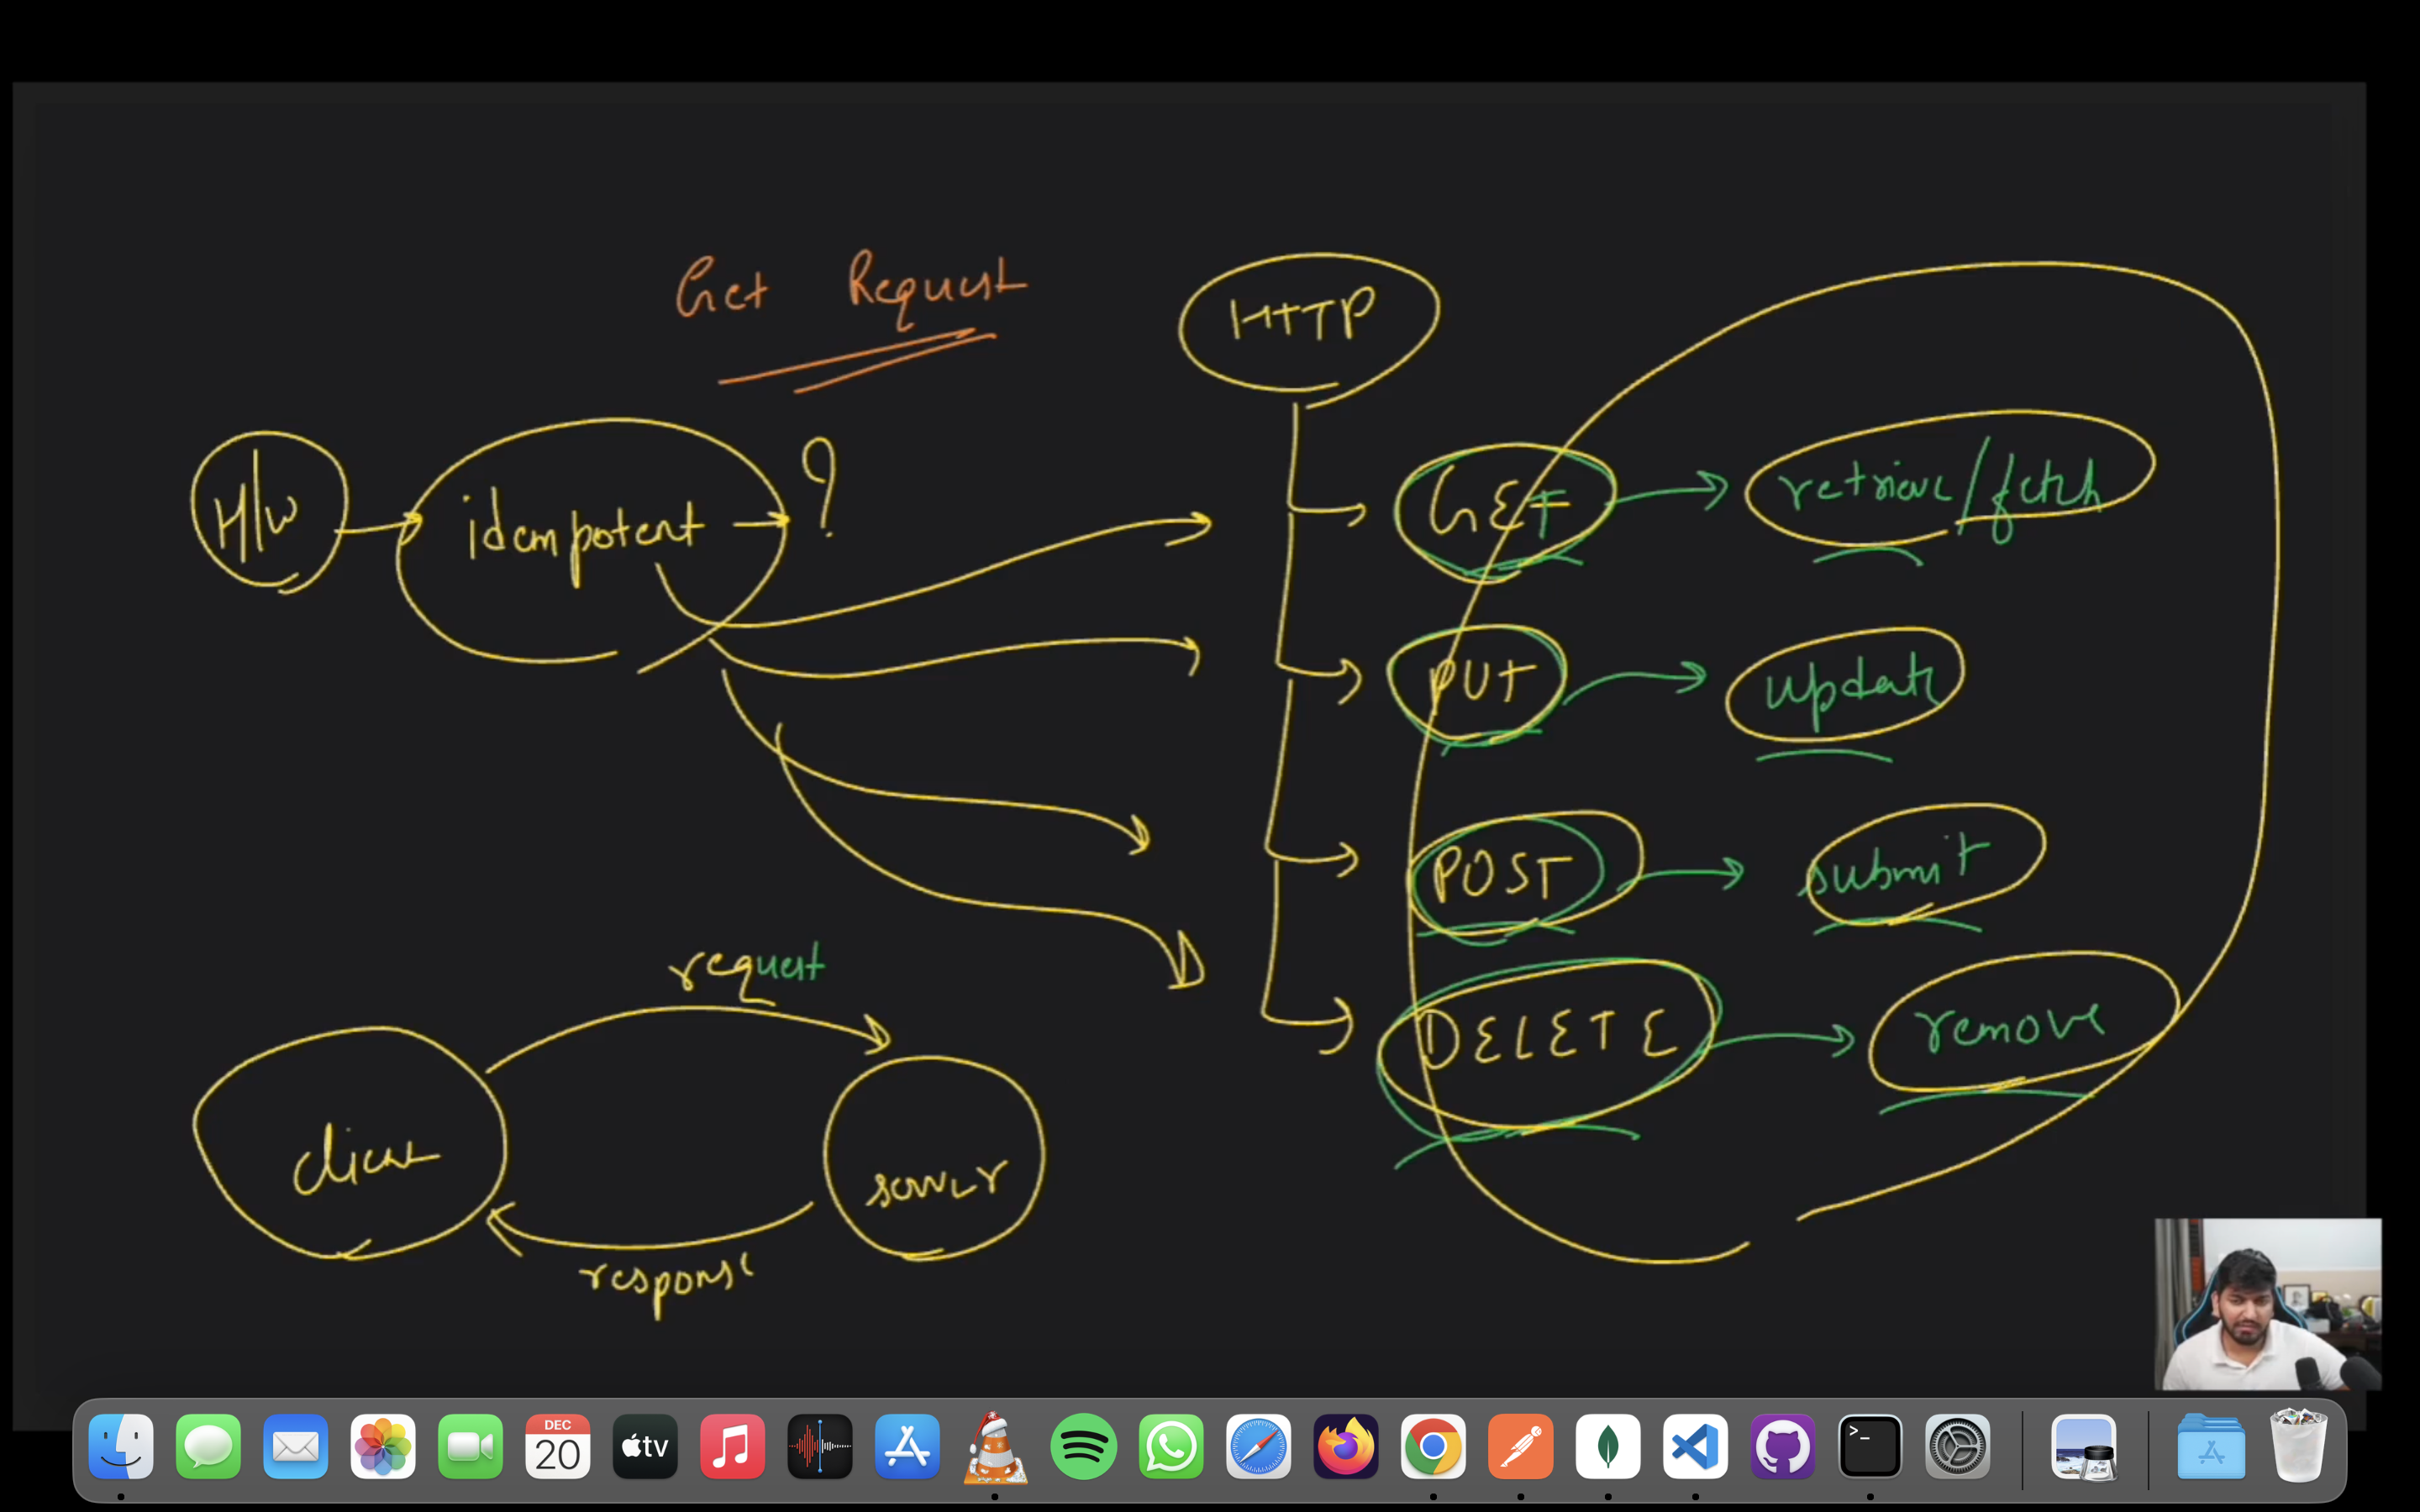 Get Request
HTTP
H/W
idempotent
?
GET
retrieve/fetch
PUT
update
POST
submit
DELETE
remove
request
client
server
response
DEC
20
tv
>_